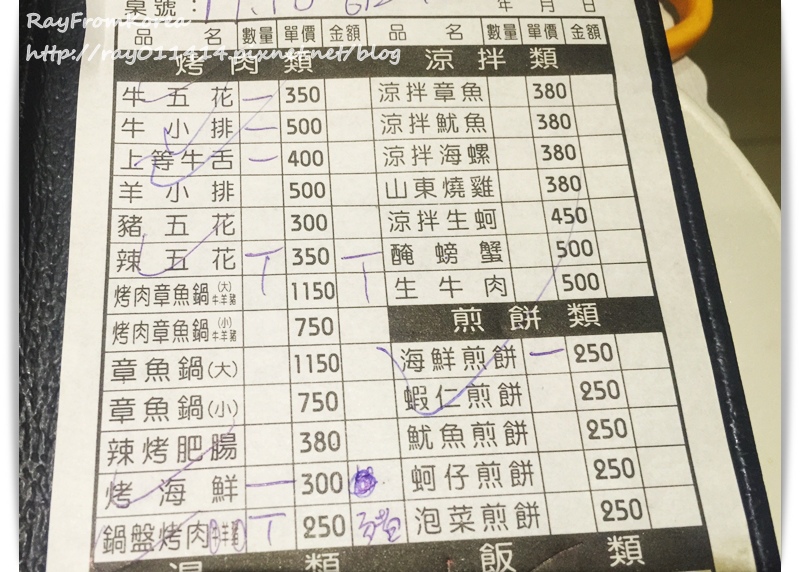 RayFromKorea
http://ray011414.pixnet.net/blog
桌號：
年 月 日
品 名 數量 單價 金額 品 名 數量 單價 金額
烤肉類 涼拌類
牛五花 一 350 涼拌章魚 380
牛小排 一 500 涼拌魷魚 380
上等牛舌 一 400 涼拌海螺 380
羊小排 500 山東燒雞 380
豬五花 300 涼拌生蚵 450
辣五花 丅 350 一 醃螃蟹 500
烤肉章魚鍋(大)牛羊豬 1150 生牛肉 500
烤肉章魚鍋(小)牛羊豬 750 煎餅類
章魚鍋(大) 1150 海鮮煎餅 一 250
章魚鍋(小) 750 蝦仁煎餅 250
辣烤肥腸 380 魷魚煎餅 250
烤海鮮 一 300 蚵仔煎餅 250
鍋盤烤肉牛羊豬 丅 250 泡菜煎餅 250
湯類 飯類